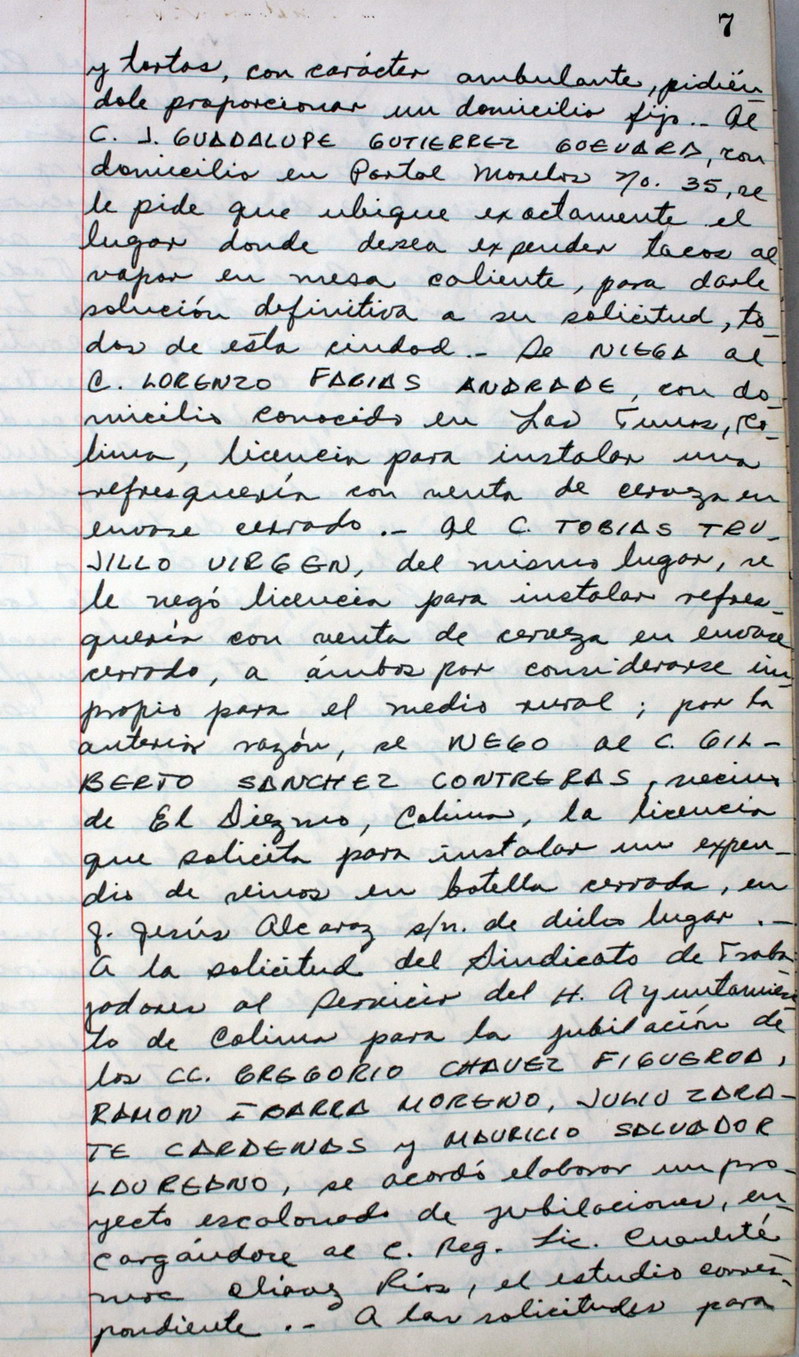 7
y tortas, con carácter ambulante, pidién-
dole proporcionar un domicilio fijo.- Al
C. J. GUADALUPE GUTIERREZ GUEVARA, con
domicilio en Portal Morelos No. 35, se
le pide que ubique exactamente el
lugar donde desea expender tacos al
vapor en mesa caliente, para darle
solución definitiva a su solicitud, to-
dos de esta ciudad.- Se NIEGA al
C. LORENZO FARIAS ANDRADE, con do-
micilio conocido en Las Tunas, Co-
lima, licencia para instalar una
refresquería con venta de cerveza en
envase cerrado.- Al C. TOBIAS TRU-
JILLO VIRGEN, del mismo lugar, se
le negó licencia para instalar refres-
quería con venta de cerveza en envase
cerrado, a ámbos por considerarse im-
propio para el medio rural; por la
anterior razón, se NEGO al C. GIL-
BERTO SANCHEZ CONTRERAS, vecino
de El Diezmo, Colima, la licencia
que solicita para instalar un expen-
dio de vinos en botella cerrada, en
J. Jesús Alcaraz s/n. de dicho lugar.-
A la solicitud del Sindicato de Traba
jadores al Servicio del H. Ayuntamien-
to de Colima para la jubilación de
los CC. GREGORIO CHAVEZ FIGUEROA,
RAMON IBARRA MORENO, JULIO ZARA-
TE CARDENAS y MAURICIO SALVADOR
LAUREANO, se acordó elaborar un pro-
yecto escalonado de jubilaciones, en-
cargándose al C. Reg. Lic. Cuauhté-
moc Chávez Ríos, el estudio corres-
pondiente.- A las solicitudes para